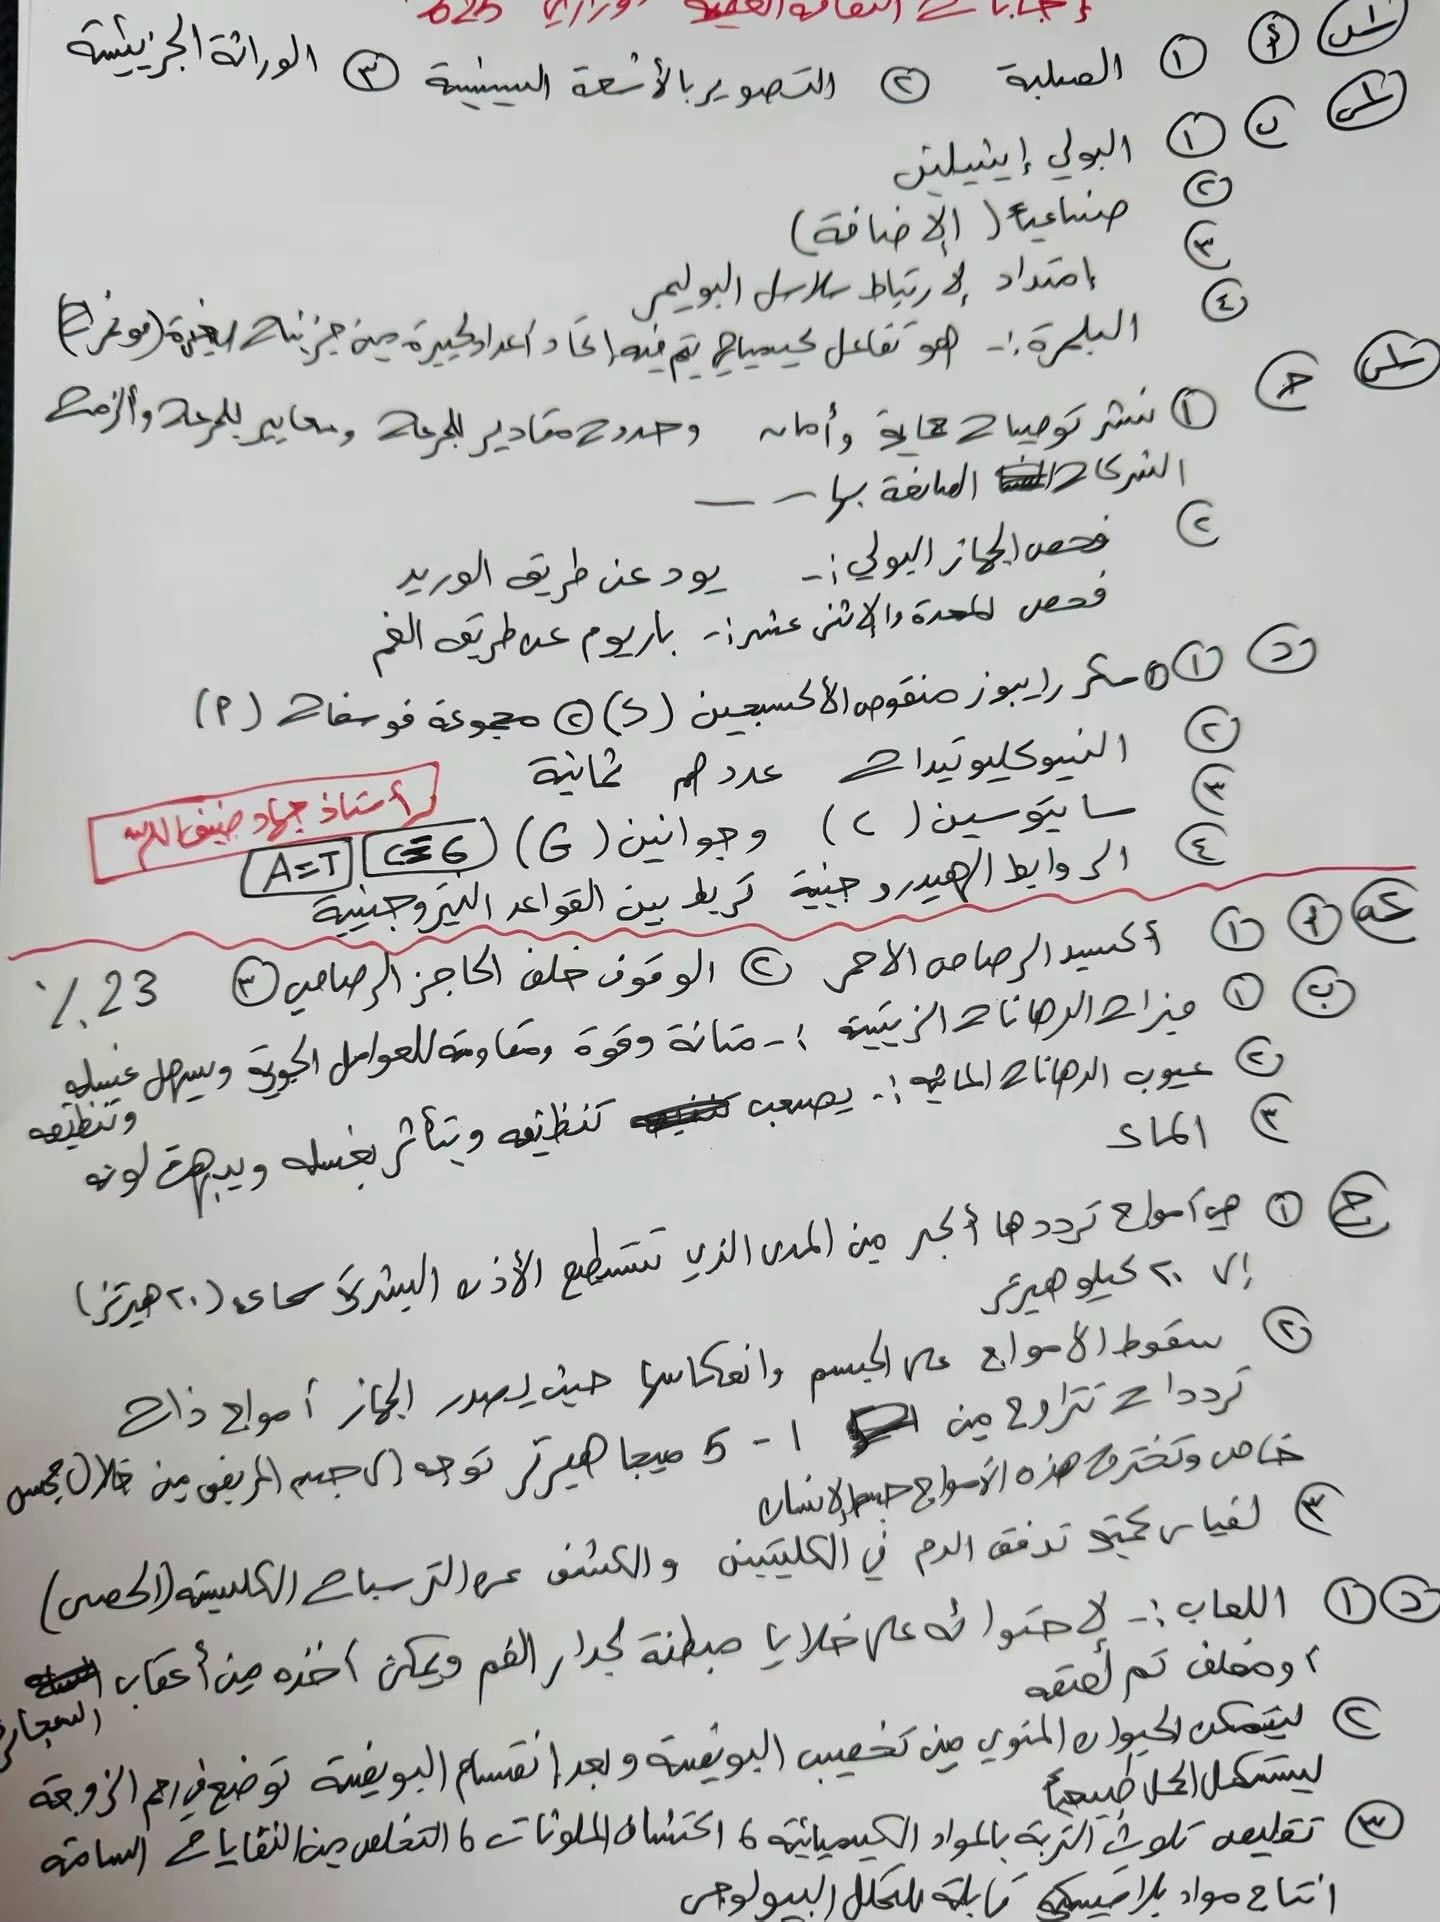 إجابات الثقافة العلمية وزاري 2025
س١ أ ① الصلبة ② التصوير بالأشعة السينية ③ الوراثة الجزيئية
س١ ب ① البولي إيثيلين
② صناعياً (الإضافة)
③ امتداد لارتباط سلاسل البوليمر
④ البلمرة :- هو تفاعل كيميائي يتم فيه إتحاد أعداد كبيرة من جزيئات صغيرة (مونمرات)
س١ ج ① نشر توصيات حماية وأمان وحدود مقادير للجرعات ومعايير للجرعات وألزمت
الشركات الصانعة بها ـ ـــ
② فحص الجهاز البولي :- يود عن طريق الوريد
فحص المعدة والاثنى عشر :- باريوم عن طريق الفم
د ① ① سكر رايبوز منقوص الأكسجين (S) ② مجموعة فوسفات (P)
② النيوكليوتيدات عددهم ثمانية
③ سايتوسين (C) وجوانين (G) C≡G A=T
④ الروابط الهيدروجينية تربط بين القواعد النيتروجينية
أستاذ جهاد ضيف الله
س٢ أ ① أكسيد الرصاص الأحمر ② الوقوف خلف الحاجز الرصاصي ③ 23 ٪
ب ① ميزات الدهانات الزيتية :- متانة وقوة ومقاومة للعوامل الجوية ويسهل غسله
وتنظيفه
② عيوب الدهانات المائية :- يصعب تنظيفه ويتأثر بغسله ويبهت لونه
③ الماء
ج ① هي أمواج ترددها أكبر من المدى الذي تستطيع الأذن البشرية سماعه (٢٠ هيرتز)
إلى ٢٠ كيلو هيرتز
② سقوط الأمواج على الجسم وانعكاسها حيث يصدر الجهاز أمواج ذات
ترددات تتراوح من 1 - 5 ميجا هيرتز توجه إلى جسم المريض من خلال مجس
خاص وتخترق هذه الأمواج جسم الإنسان
③ لقياس كمية تدفق الدم في الكليتين والكشف عن الترسبات الكلسية (الحصى)
د ① اللعاب :- لاحتوائه على خلايا مبطنة لجدار الفم ويمكن أخذه من أعقاب السجائر
أو مغلف تم لصقه
② ليتمكن الحيوان المنوي من تخصيب البويضة وبعد إنقسام البويضة توضع في رحم الزوجة
ليستكمل الحمل طبيعياً
③ تقليص تلوث التربة بالمواد الكيميائية ، اكتشاف الملوثات ، التخلص من النفايات السامة
انتاج مواد بلاستيكية قابلة للتحلل البيولوجي